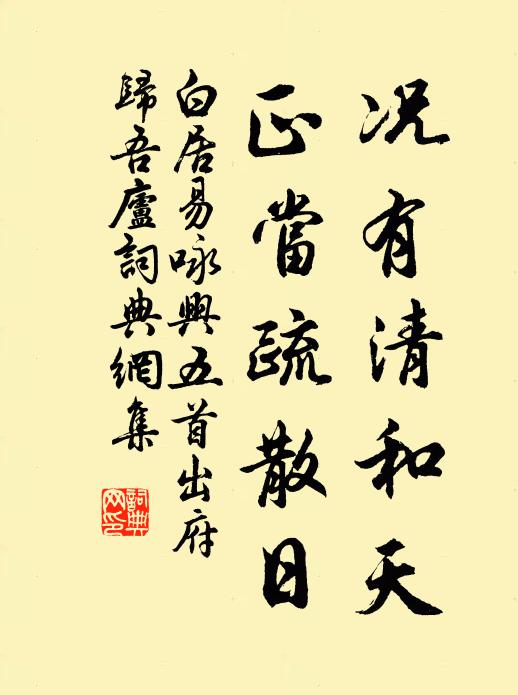 况有清和天
正當疏散日
白居易咏興五首出府
歸吾廬詞典網集
詞典
网印